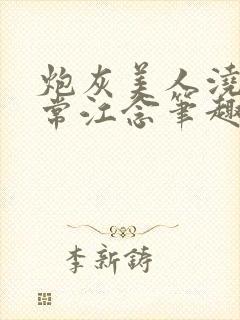 炮灰美人浇
常江念笔趣
李新鋳